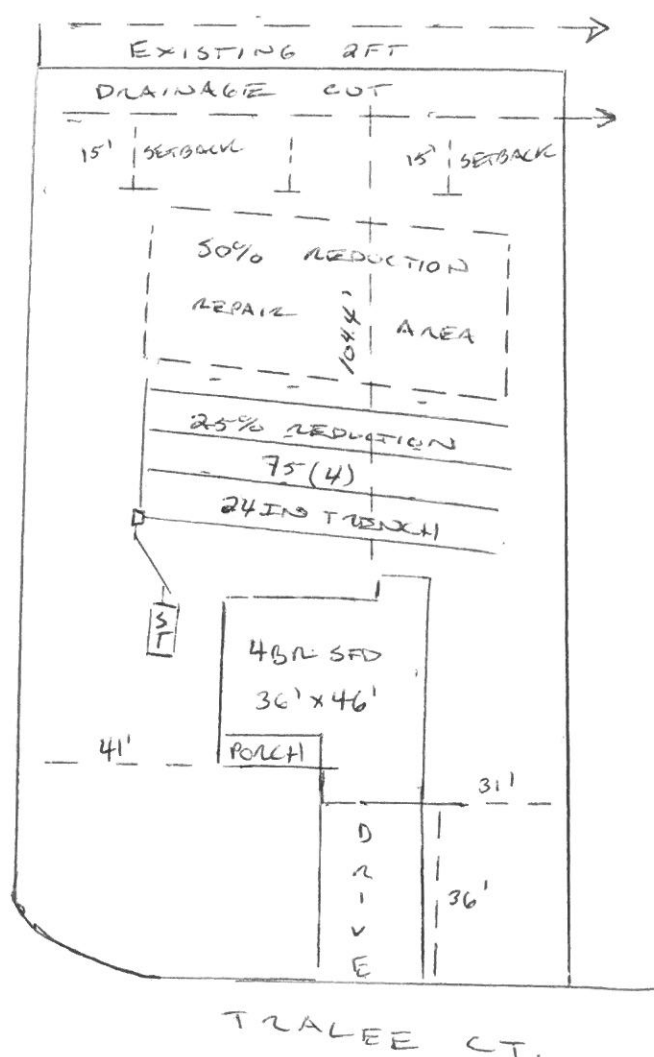 EXISTING 2FT
DRAINAGE CUT
15' SETBACK
15' SETBACK
50% REDUCTION
REPAIR AREA
104.4'
25% REDUCTION
75(4)
24IN TRENCH
D
ST
4BR SFD
36' x 46'
PORCH
41'
31'
DRIVE
36'
TRALEE CT.